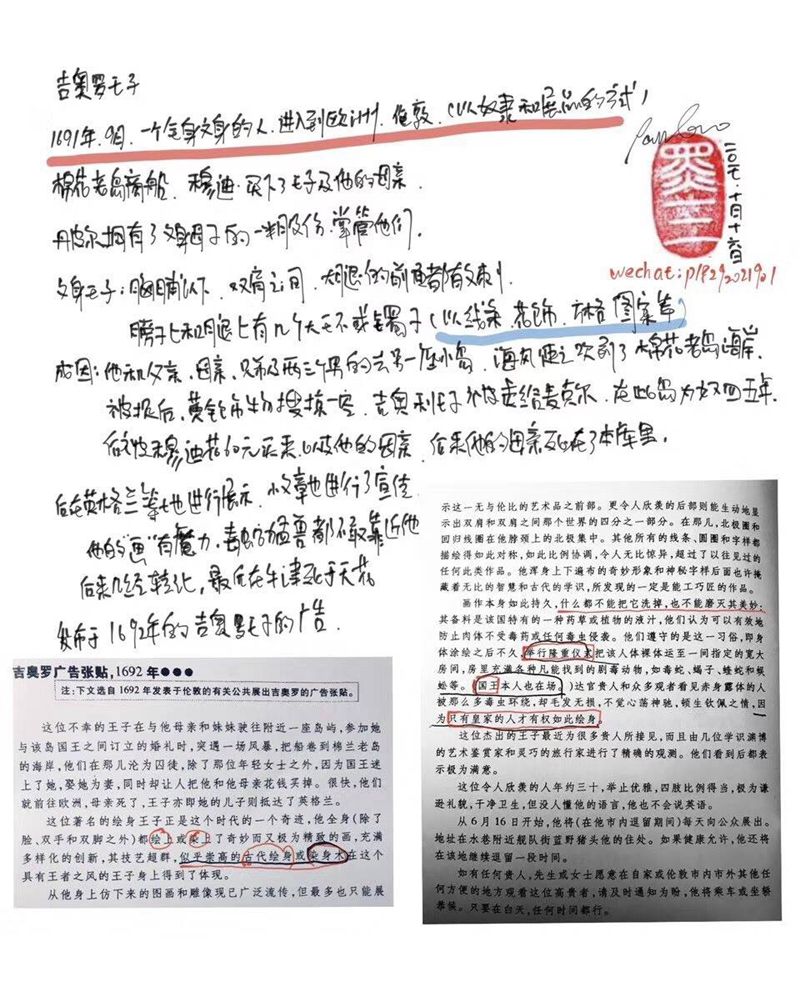 吉奥罗王子
1691年.9月.一个全身文身的人.进入到欧洲.伦敦.(以奴隶和展品的方式)
二〇二〇.十月十六日
棉花老岛商船.穆迪.买下了王子及他的母亲.
丹皮尔拥有了文身王子的一半股份.掌管他们.
wechat:p18291202190
文身王子:胸脯以下.双肩之间.大腿的前面都有文刺.
膀子上和腿上有几个大 镯子(以线条.花饰.方格图案等)
成因:他和父亲.母亲.兄弟及两三个男的去另一座小岛.海风使之吹到了棉花老岛海岸.
被捉后.黄金饰物搜掠一空.吉奥利王子 被卖给麦克尔.在此岛为奴四五年.
后被穆迪花60元买来.以及他的母亲.后来他的母亲死在了本库里.
后在英格兰等地进行展示.文章也进行了宣传
他的“画”有魔力.毒虫猛兽都不敢靠近他
后来几经转让.最后在牛津死于天花
发布于1692年的吉奥罗王子的广告.
吉奥罗广告张贴,1692年●●●
注:下文选自1692年发表于伦敦的有关公共展出吉奥罗的广告张贴。
这位不幸的王子在与他母亲和妹妹驶往附近一座岛屿,参加她
与该岛国王之间订立的婚礼时,突遇一场风暴,把船卷到棉兰老岛
的海岸,他们在那儿沦为囚徒,除了那位年轻女士之外,因为国王迷
上了她,娶她为妻,同时却让人把他和他母亲花钱买掉。很快,他们
就前往欧洲,母亲死了,王子亦即她的儿子则抵达了英格兰。
这位著名的绘身王子正是这个时代的一个奇迹,他全身(除了
脸、双手和双脚之外)都绘上或染上了奇妙而又极为精致的画,充满
多样化的创新,其技艺超群,似乎崇高的古代绘身或染身术在这个
具有王者之风的王子身上得到了体现。
从他身上仿下来的图画和雕像现已广泛流传,但最多也只能展
示这一无与伦比的艺术品之前部。更令人欣羡的后部则能生动地显
示出双肩和双肩之间那个世界的四分之一部分。在那儿,北极圈和
回归线圈在他脖颈上的北极集中。其他所有的线条、圆圈和字样都
描绘得如此对称,如此比例协调,令人无比惊异,超过了以往见过的
任何此类作品。他浑身上下遍布的奇妙形象和神秘字样后面也许掩
藏着无比的智慧和古代的学识,所发现的一定是能工巧匠的作品。
画作本身如此持久,什么都不能把它洗掉,也不能磨灭其美妙:
其备料是该国特有的一种药草或植物的液汁,他们认为可以有效地
防止肉体不受毒药或任何毒虫侵袭。他们遵守的是这一习俗,即身
体涂绘之后不久,举行隆重仪式把该人裸体运至一间指定的宽大
房间,房里充满各种凡能找到的剧毒动物,如毒蛇、蝎子、蝰蛇和蜈
蚣等。(国王本人也在场。)达官贵人和众多观者看见赤身露体的人
被那么多毒虫环绕,却毛发无损,不觉心荡神驰,顿生钦佩之情,因
为只有皇家的人才有权如此绘身。
这位杰出的王子最近为很多贵人所接见,而且由几位学识渊博
的艺术鉴赏家和灵巧的旅行家进行了精确的观测。他们看到后都表
示极为满意。
这位令人欣羡的人年约三十,举止优雅,四肢比例得当,极为谦
逊礼貌,干净卫生,但没人懂他的语言,他也不会说英语。
从6月16日开始,他将(在他市内逗留期间)每天向公众展出。
地址在水巷附近舰队街蓝野猪头他的住处。如果健康允许,他还将
在该地继续逗留一段时间。
如有任何贵人,先生或女士愿意在自家或伦敦市内市外其他任
何方便的地方观看这位高贵者,请及时通知为盼,他将乘车或坐轿
恭候。只要在白天,任何时间都行。